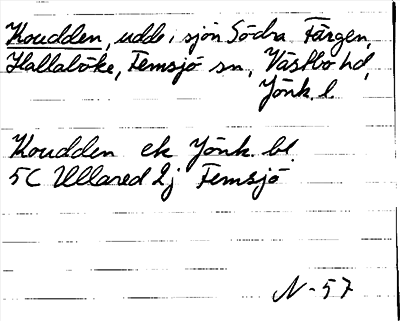 Koudden, udde i sjön Södra Färgen,
Hallaböke, Femsjö sn, Västbo hd,
Jönk. l.
Koudden ek Jönk. bl.
5C Ullared 2j Femsjö
N-57